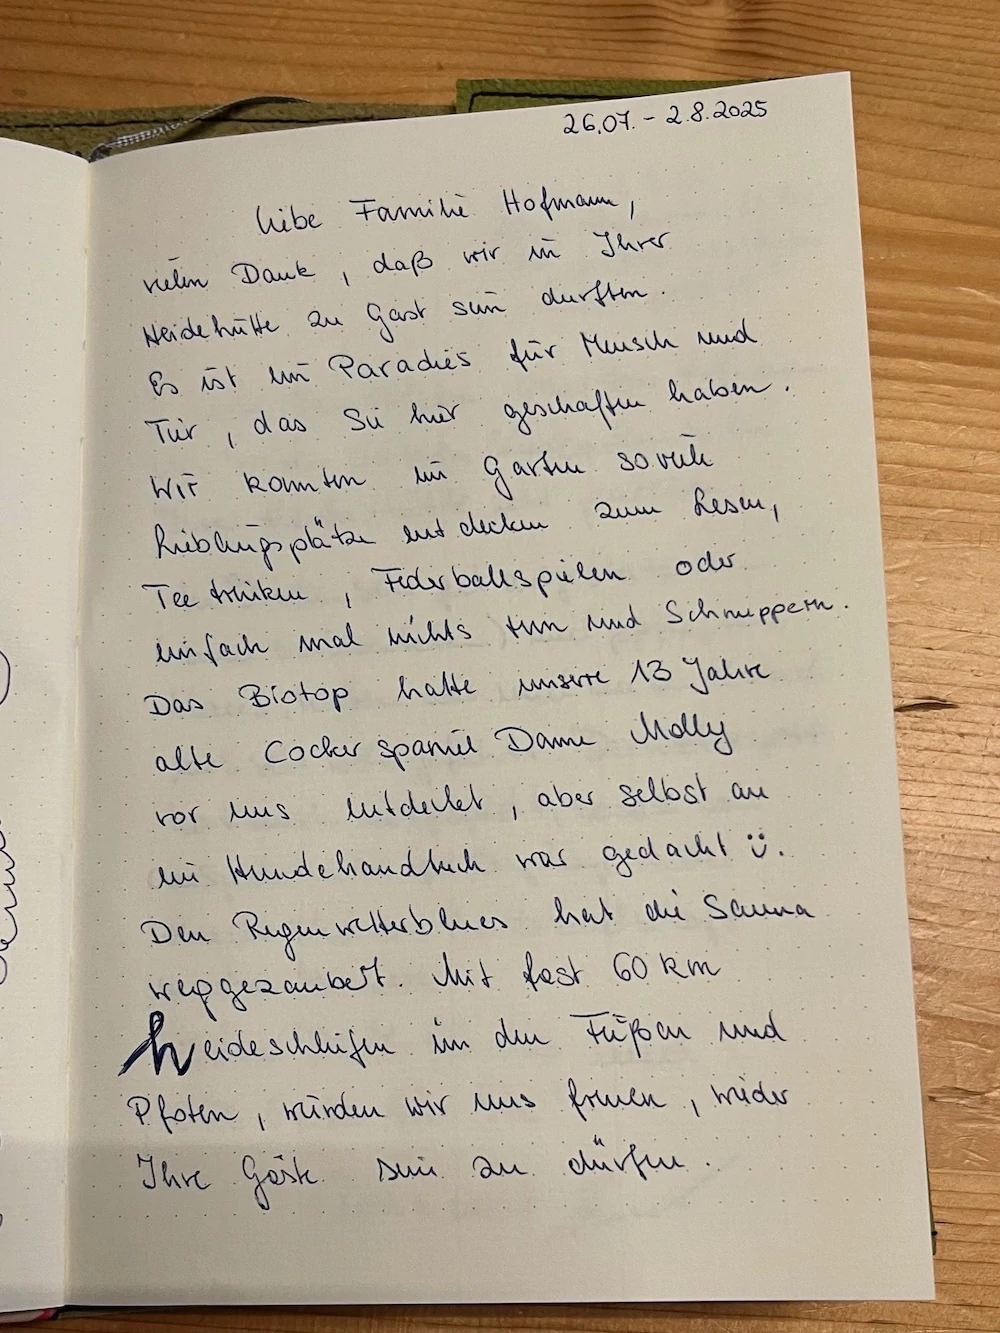 26.07. - 2.8.2025
Liebe Familie Hofmann,
vielen Dank, daß wir in Ihrer
Heidehütte zu Gast sein durften.
Es ist ein Paradies für Mensch und
Tier, das Sie hier geschaffen haben.
Wir konnten im Garten so viele
Lieblingsplätze entdecken zum Lesen,
Tee trinken, Federballspielen oder
einfach mal nichts tun und Schnuppern.
Das Biotop hatte unsere 13 Jahre
alte Cockerspaniel Dame Molly
vor uns entdeckt, aber selbst an
ein Hundehandtuch war gedacht ü.
Den Regenwetterblues hat die Sauna
weggezaubert. Mit fast 60 km
Heideschleifen in den Füßen und
Pfoten, würden wir uns freuen, wieder
Ihre Gäste sein zu dürfen.